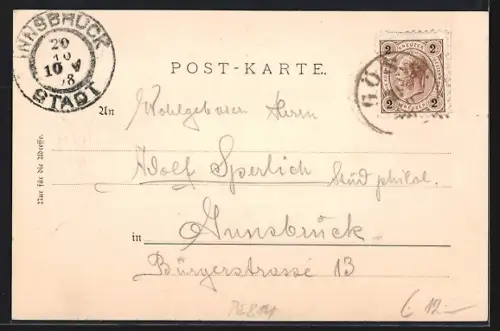 INNSBRUCK
20
10
10 V
98
STADT
POST-KARTE.
2 KREUZER 2
2 2
GÖ
An
Wohlgeboren Herrn
Adolf Sperlich Stud philol.
Innsbruck
in
Bürgerstrasse 13
Nur für die Adresse.
6 12.–